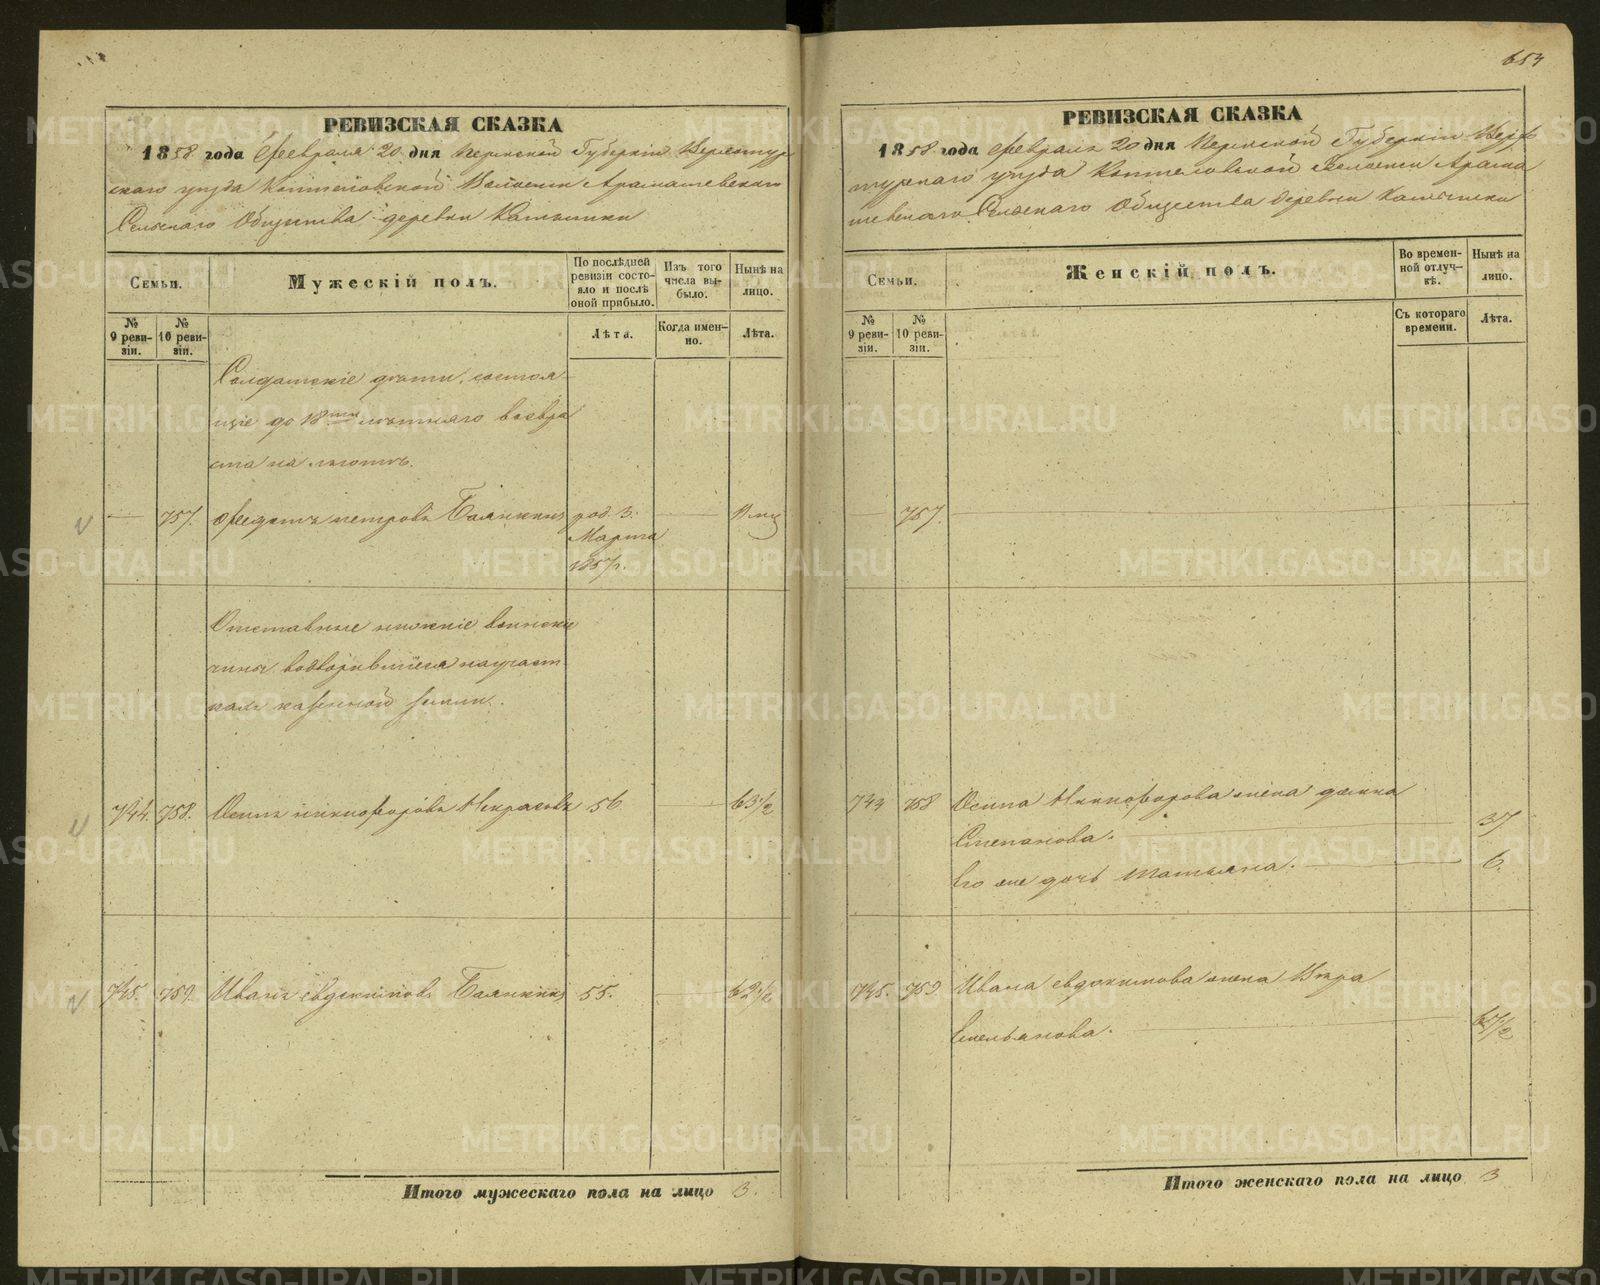 654
РЕВИЗСКАЯ СКАЗКА
1858 года Февраля 20 дня Пермской Губернiи Верхотур
скаго уѣзда Коптеловской Волости Арамашевскаго
Сельскаго Общества деревни Катышки
Семьи.
Мужескiй полъ.
По послѣдней
ревизiи состо-
яло и послѣ
оной прибыло.
Изъ того
числа вы-
было.
Нынѣ на
лицо.
№
9 реви-
зiи.
№
10 реви-
зiи.
Лѣта.
Когда имен-
но.
Лѣта.
Солдатскiе дѣти, состоя
щiе до 18ти лѣтняго возра
ста на льготѣ.
— 757. Федотъ Петровъ Балакинъ род. 3. — 11 мц
Марта
1857 г.
Отставные нижнiе воинскiе
чины водворившiеся на участ
кахъ казенной земли.
744. 758. Осипъ Никифоровъ Некрасовъ 56 — 63 1/2
745. 759. Иванъ Евдокимовъ Балакинъ 55. — 62 1/2
Итого мужескаго пола на лицо 3.
РЕВИЗСКАЯ СКАЗКА
1858 года Февраля 20 дня Пермской Губернiи Верхо
турскаго уѣзда Коптеловской Волости Арама
шевскаго Сельскаго Общества деревни Катышки
Семьи.
Женскiй полъ.
Во времен-
ной отлуч-
кѣ.
Нынѣ на
лицо.
№
9 реви-
зiи.
№
10 реви-
зiи.
Съ котораго
времени.
Лѣта.
757.
744 758 Осипа Никифорова жена Домна
Степанова. 37
Его же дочь Татьяна. 6.
745. 759 Ивана Евдокимова жена Вѣра
Емельянова.
Итого женскаго пола на лицо 3
METRIKI.GASO-URAL.RU